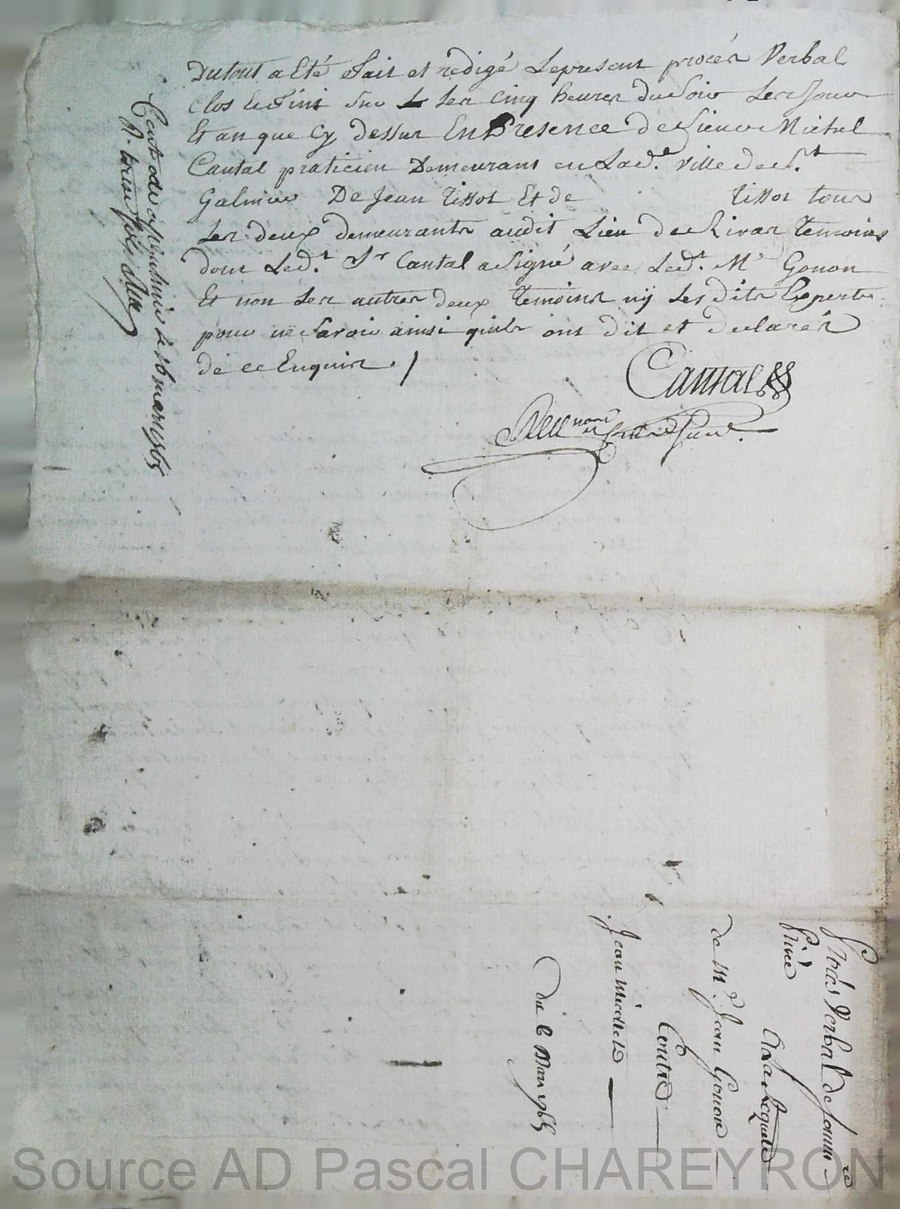 Du tout a Eté fait et redigé Le present procés Verbal
Clos et fini sur Les cinq heures du Soir Les Jour
Et an que Cy dessus En Presence de Sieur Michel
Cantal praticien Demeurant en La de. ville de St
Galmier De Jean Tissot Et de Tissot tous
Les deux demeurants audit Lieu de Rivas temoins
dont Led.t Sr Cantal a Signé avec Led.t Me Gonon
Et non Les autres deux temoins ny Lesdits Experts
pour ne Savoir ainsi quils ont dit et declarés
de ce Enquis /
Cantal
du 6 Mars 1765
Jean
Contre
de Me Jean Gonon
A La Requete
Procés Verbal de
Source AD Pascal CHAREYRON